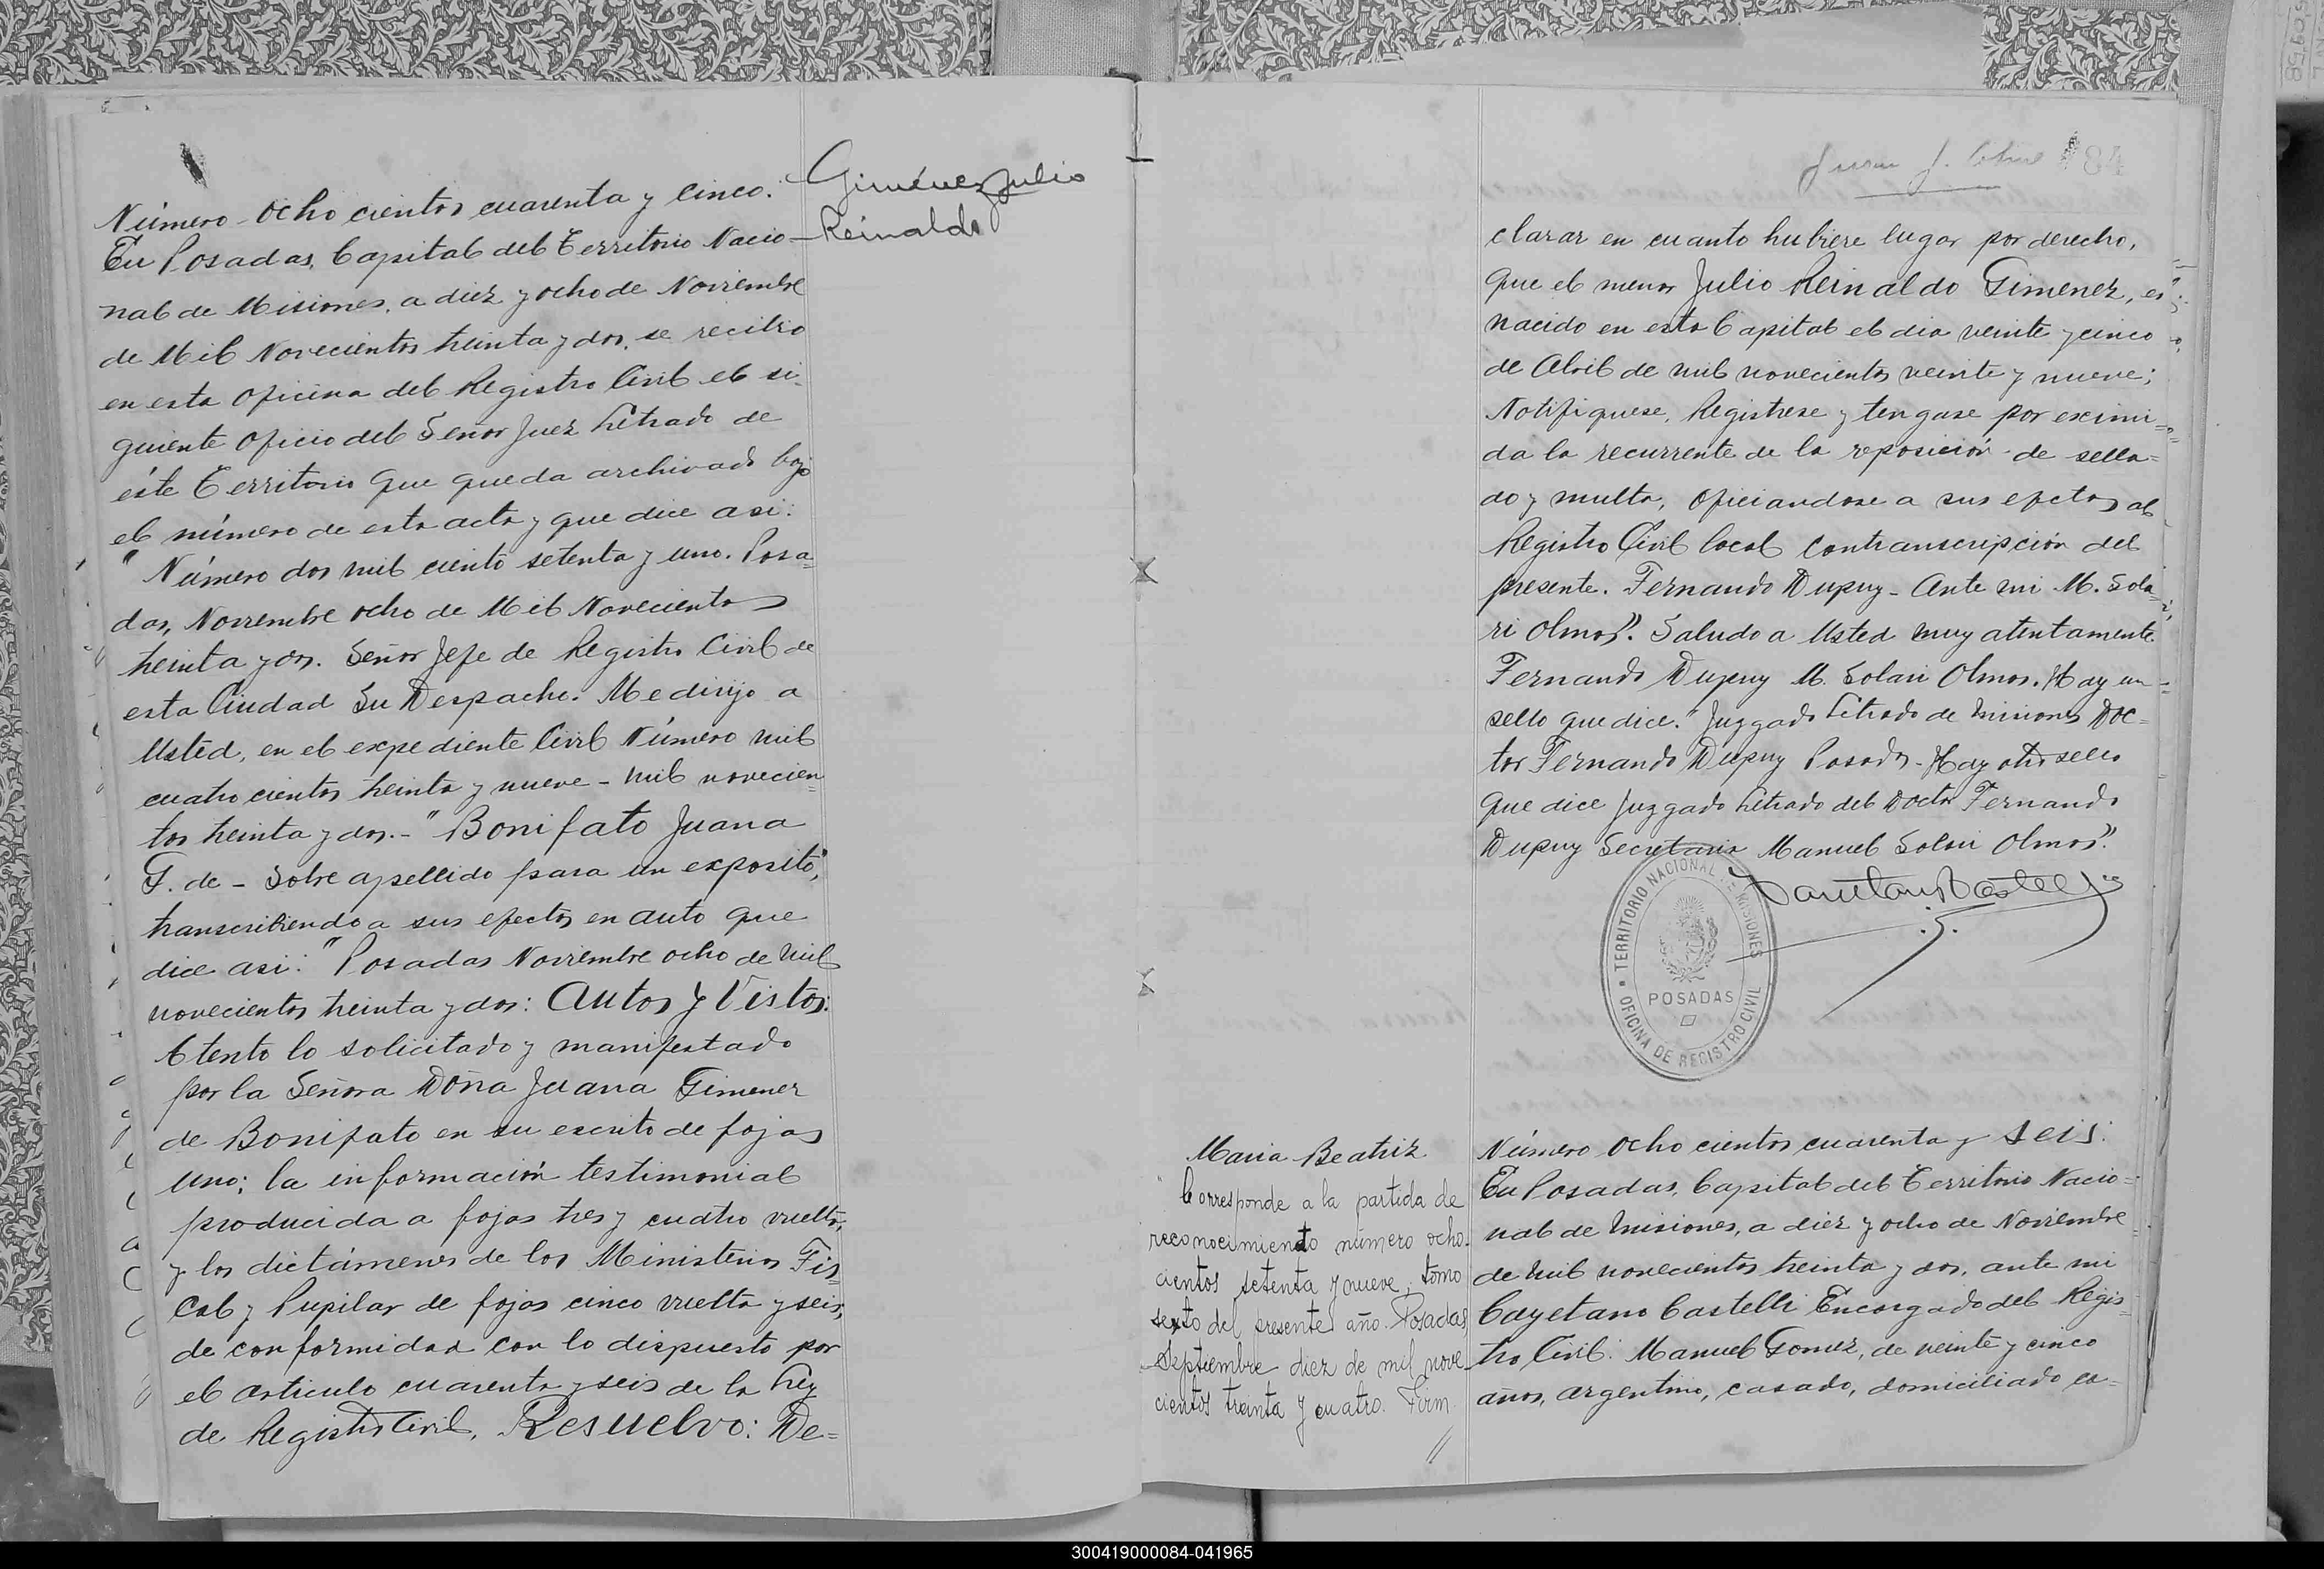 Giménez Julio
Reinaldo
Número Ocho cientos cuarenta y cinco.
En Posadas, Capital del Territorio Nacio-
nal de Misiones, a diez y ocho de Noviembre
de Mil Novecientos treinta y dos, se recibió
en esta Oficina del Registro Civil el si-
guiente Oficio del Señor Juez Letrado de
éste Territorio que queda archivado bajo
el número de esta acta y que dice asi:
" Número dos mil ciento setenta y uno. Posa=
das, Noviembre ocho de Mil Novecientos
treinta y dos. Señor Jefe de Registro Civil de
esta Ciudad Su Despacho. Me dirijo a
Usted, en el expediente Civil Número mil
cuatro cientos treinta y nueve - mil novecien=
tos treinta y dos.- "Bonifato Juana
G. de - Sobre apellido para un exposito",
transcribiendo a sus efectos en auto que
dice asi: "Posadas Noviembre ocho de mil
novecientos treinta y dos: Autos y Vistos:
Atento lo solicitado y manifestado
por la Señora Doña Juana Gimenez
de Bonifato en su escrito de fojas
uno; la información testimonial
producida a fojas tres y cuatro vuelta,
y los dictámenes de los Ministerios Fis=
cal y Pupilar de fojas cinco vuelta y seis,
de conformidad con lo dispuesto por
el articulo cuarenta y seis de la Ley
de Registro Civil, Resuelvo: De=
Juan J. 84
clarar en cuanto hubiere lugar por derecho,
que el menor Julio Reinaldo Gimenez, es
nacido en esta Capital el dia veinte y cinco
de Abril de mil novecientos veinte y nueve;
Notifiquese, Registrese y tengase por eximi=
da la recurrente de la reposición de sella=
do y multa, oficiandose a sus efectos al
Registro Civil local con transcripción del
presente. Fernando Dupuy - Ante mi M. Sola=
ri Olmos". Saludo a Usted muy atentamente.
Fernando Dupuy M. Solari Olmos. Hay un
sello que dice." Juzgado Letrado de Misiones Doc=
tor Fernando Dupuy Posadas - Hay otro sello
que dice Juzgado Letrado del Doctor Fernando
Dupuy Secretario Manuel Solari Olmos".
TERRITORIO NACIONAL DE MISIONES
POSADAS
OFICINA DE REGISTRO CIVIL
Maria Beatriz
Corresponde a la partida de
reconocimiento número ocho-
cientos setenta y nueve, tomo
sexto del presente año. Posadas,
Septiembre diez de mil nove-
cientos treinta y cuatro. Firm
//
Número Ocho cientos cuarenta y seis:
En Posadas, Capital del Territorio Nacio=
nal de Misiones, a diez y ocho de Noviembre
de mil novecientos treinta y dos, ante mi
Cayetano Castelli Encargado del Regis=
tro Civil: Manuel Gomez, de veinte y cinco
años, argentino, casado, domiciliado en=
300419000084-041965